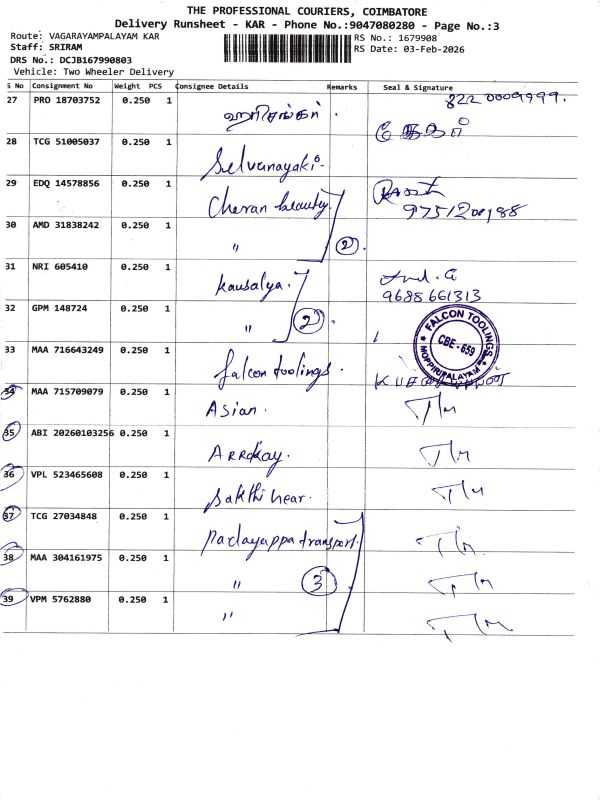 THE PROFESSIONAL COURIERS, COIMBATORE
Delivery Runsheet - KAR - Phone No.:9047080280 - Page No.:3
Route: VAGARAYAMPALAYAM KAR
Staff: SRIRAM
DRS No.: DCJB167990803
Vehicle: Two Wheeler Delivery
RS No.: 1679908
RS Date: 03-Feb-2026
S No Consignment No Weight PCS Consignee Details Remarks Seal & Signature
27 PRO 18703752 0.250 1 8220009999.
28 TCG 51005037 0.250 1 Selvanayaki.
29 EDQ 14578856 0.250 1 Cheran beauty
30 AMD 31838242 0.250 1 " 2.
31 NRI 605410 0.250 1 Kausalya.
9688661313
32 GPM 148724 0.250 1 " 2
33 MAA 716643249 0.250 1 Falcon toolings.
FALCON TOOLINGS
CBE-659
MOPPIRIPALAYAM
34 MAA 715709079 0.250 1 Asian.
35 ABI 20260103256 0.250 1
36 VPL 523465608 0.250 1 Sakthi
37 TCG 27034848 0.250 1 Padayappa transport
38 MAA 304161975 0.250 1 " 3
39 VPM 5762880 0.250 1 "